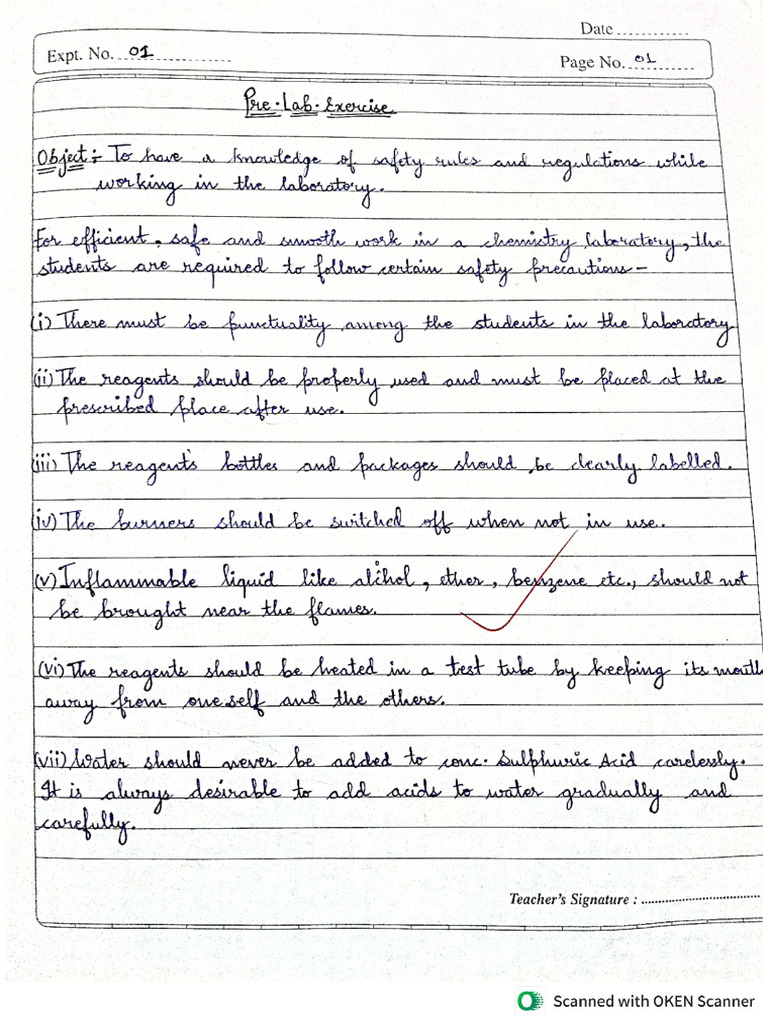 Date ............
Expt. No. .. 01 ..............
Page No. 01 ..........
Pre-Lab-Exercise
Object :- To have a knowledge of safety rules and regulations while
working in the laboratory.
For efficient, safe and smooth work in a chemistry laboratory, the
students are required to follow certain safety precautions -
(i) There must be punctuality among the students in the laboratory
(ii) The reagents should be properly used and must be placed at the
prescribed place after use.
(iii) The reagents bottles and packages should be clearly labelled.
(iv) The burners should be switched off when not in use.
(v) Inflammable liquid like alchol, ether, benzene etc., should not
be brought near the flames.
(vi) The reagents should be heated in a test tube by keeping its mouth
away from oneself and the others.
(vii) Water should never be added to conc. Sulphuric Acid carelessly.
It is always desirable to add acids to water gradually and
carefully.
Teacher's Signature : ....................................
Scanned with OKEN Scanner